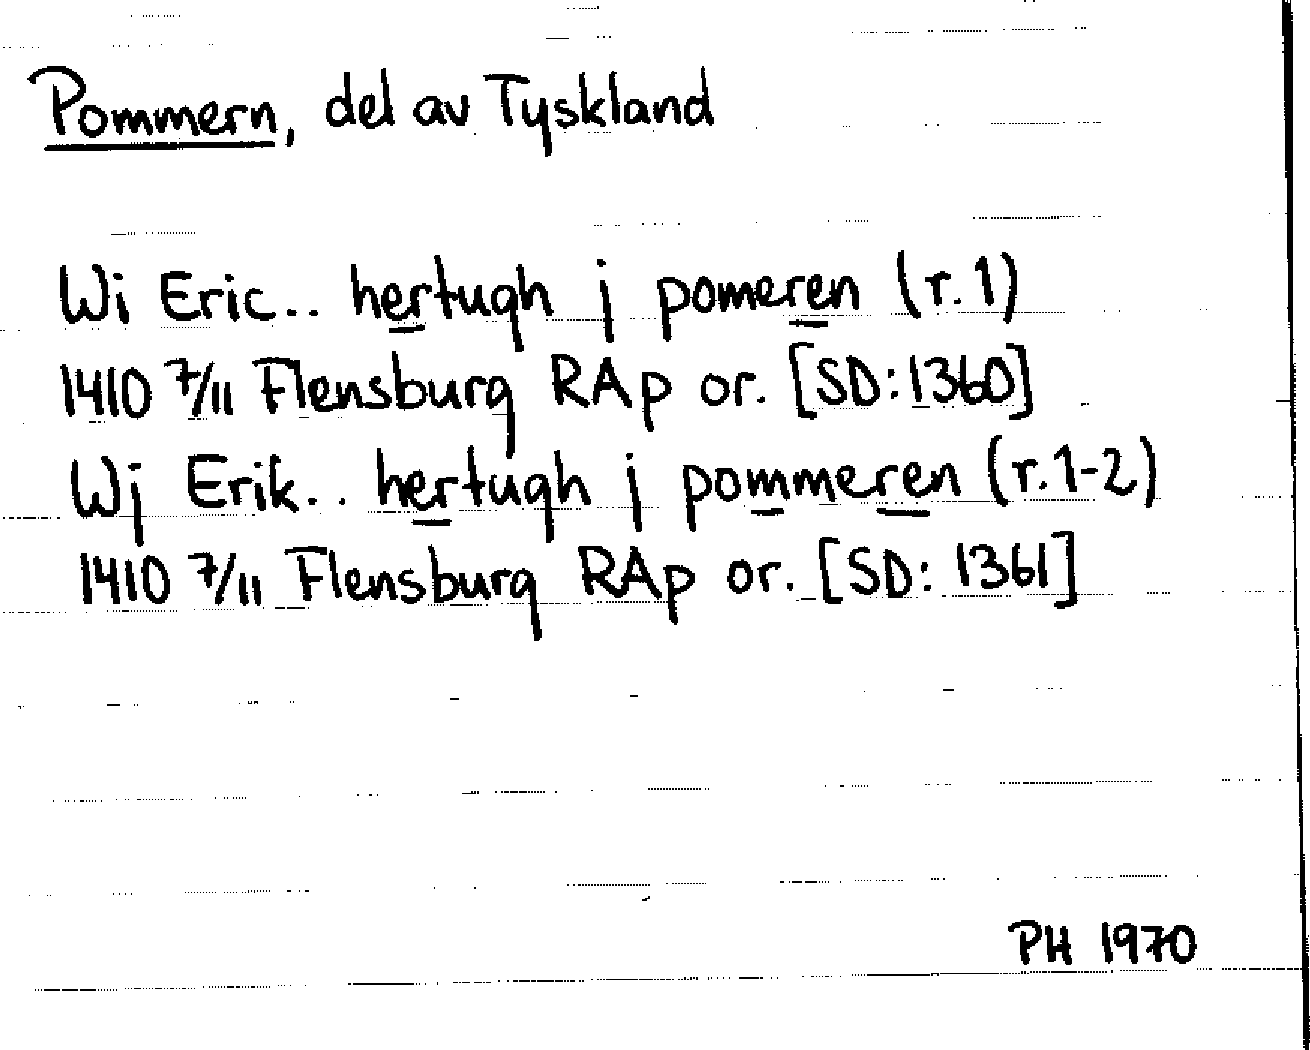 Pommern, del av Tyskland
Wi Eric.. hertugh j pomeren (r.1)
1410 7/11 Flensburg RAp or. [SD:1360]
Wj Erik.. hertugh j pommeren (r.1-2)
1410 7/11 Flensburg RAp or. [SD: 1361]
PH 1970